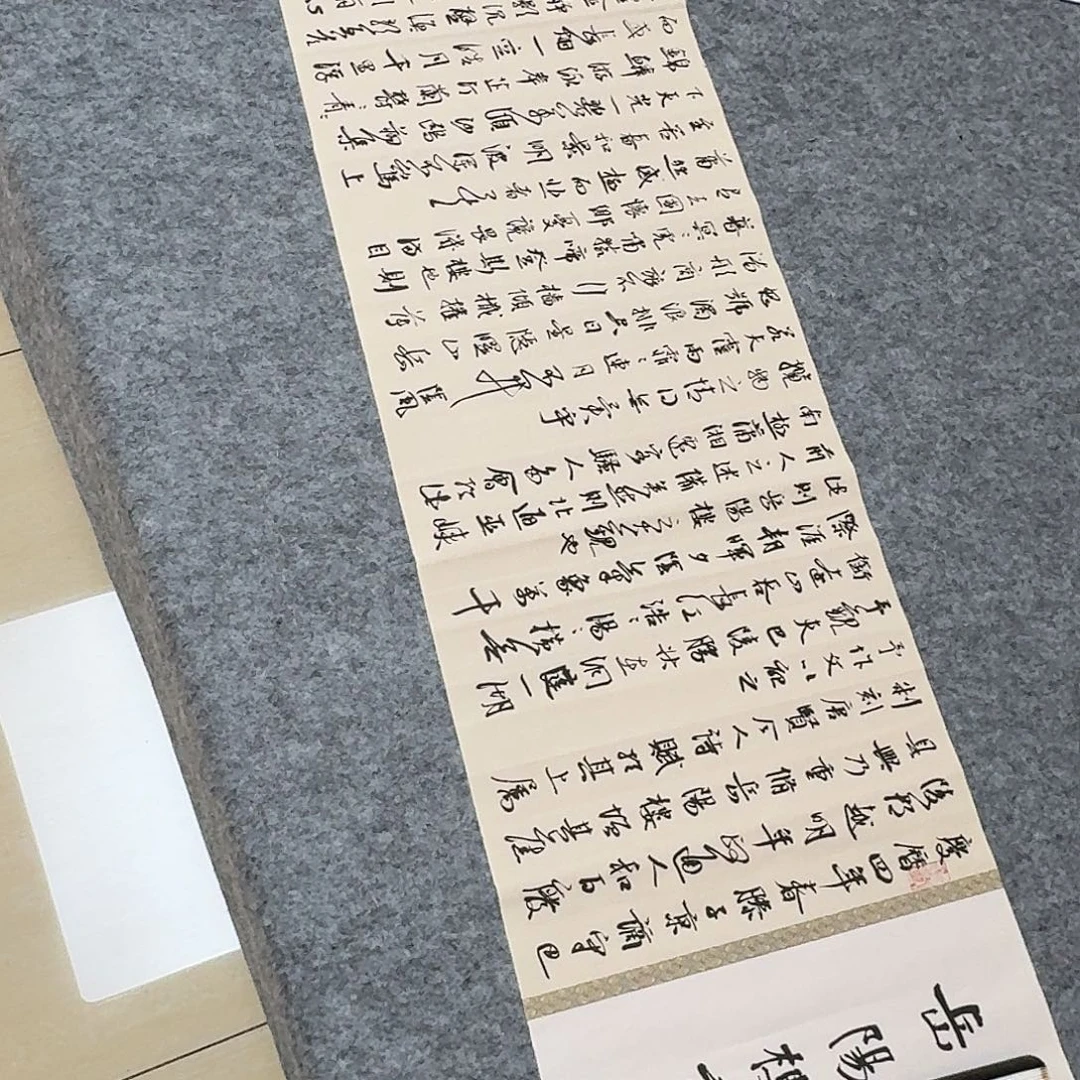 岳陽樓
慶曆四年春滕子京謫守巴
陵郡越明年政通人和百廢
具興乃重修岳陽樓增其舊
制刻唐賢今人詩賦於其上屬
予作文以記之
予觀夫巴陵勝狀在洞庭一湖
銜遠山吞長江浩〻湯〻橫無
際涯朝暉夕陰氣象萬千
此則岳陽樓之大觀也
前人之述備矣然則北通巫峽
南極瀟湘遷客騷人多會於此
覽物之情得無異乎
若夫霪雨霏〻連月不開陰風
怒號濁浪排空日星隱曜山岳
潛形商旅不行檣傾楫摧薄
暮冥〻虎嘯猿啼登斯樓也則
有去國懷鄉憂讒畏譏滿目
蕭然感極而悲者矣
至若春和景明波瀾不驚上
下天光一碧萬頃沙鷗翔集
錦鱗游泳岸芷汀蘭郁〻青〻
而或長煙一空皓月千里浮
影沉璧漁歌